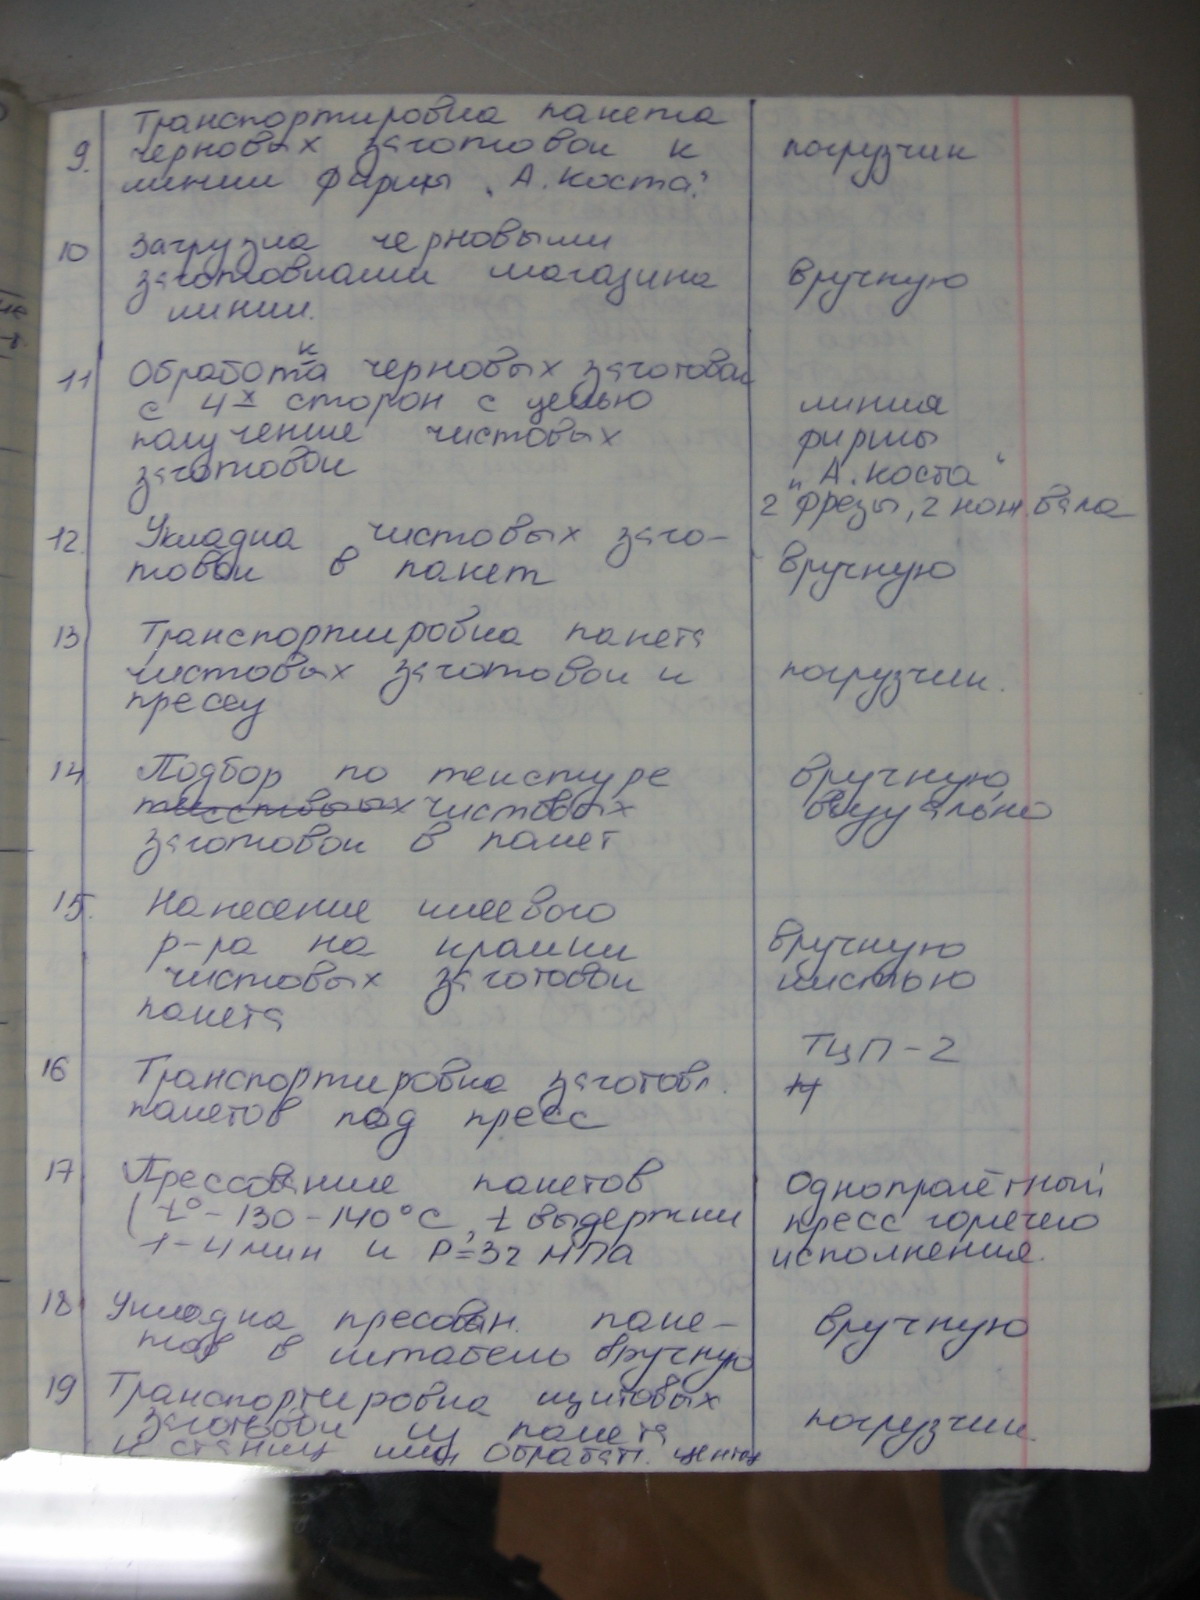 9. Транспортировка пакета
черновых заготовок к
линии фирмы „А. Коста."
погрузчик
10 Загрузка черновыми
заготовками магазина
линии.
вручную
11 Обработка черновых заготовок
с 4х сторон с целью
получение чистовых
заготовок
линия
фирмы
„А. Коста“
2 фрезы, 2 нож. вала
12. Укладка чистовых заго-
товок в пакет
вручную
13 Транспортировка пакета
чистовых заготовок к
прессу
погрузчик.
14 Подбор по текстуре
чистовых
заготовок в пакет
вручную,
визуально
15. Нанесение клеевого
р-ра на кромки
чистовых заготовок
пакета
вручную
кистью
16 Транспортировка заготовл.
пакетов под пресс
ТЦП-2
17 Прессование пакетов
(t°-130-140°С, t выдержки
1-4 мин и Р=32 МПа
Однопролётный
пресс горячего
исполнения.
18 Укладка прессован. паке-
тов в штабель вручную
вручную
19 Транспортировка щитовых
заготовок из пакета
к станку или обрабат. центру
погрузчик.